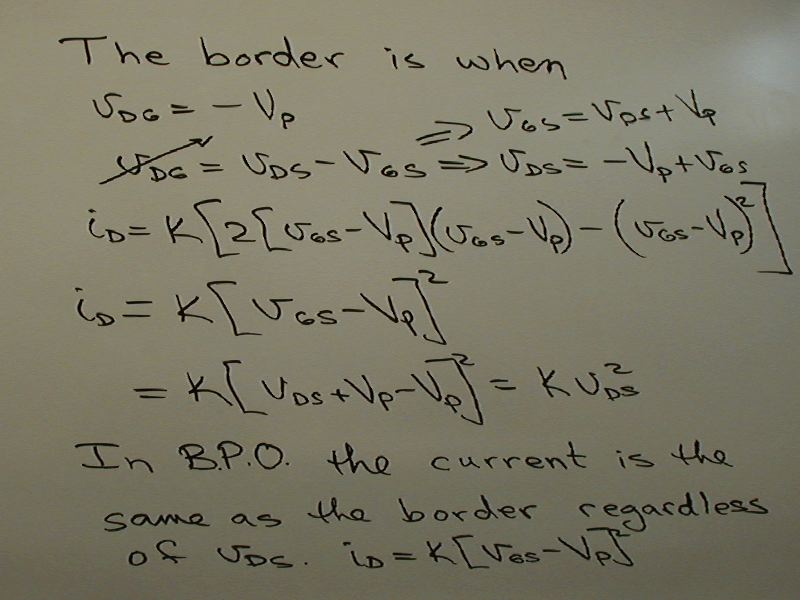 The border is when
v_DG = - V_P
⇒ v_GS = v_DS + V_P
v_DG = v_DS - v_GS ⇒ v_DS = -V_P + v_GS
i_D = K[2[v_GS - V_P](v_GS - V_P) - (v_GS - V_P)²]
i_D = K[v_GS - V_P]²
= K[v_DS + V_P - V_P]² = K v_DS²
In B.P.O. the current is the
same as the border regardless
of v_DS. i_D = K[v_GS - V_P]²